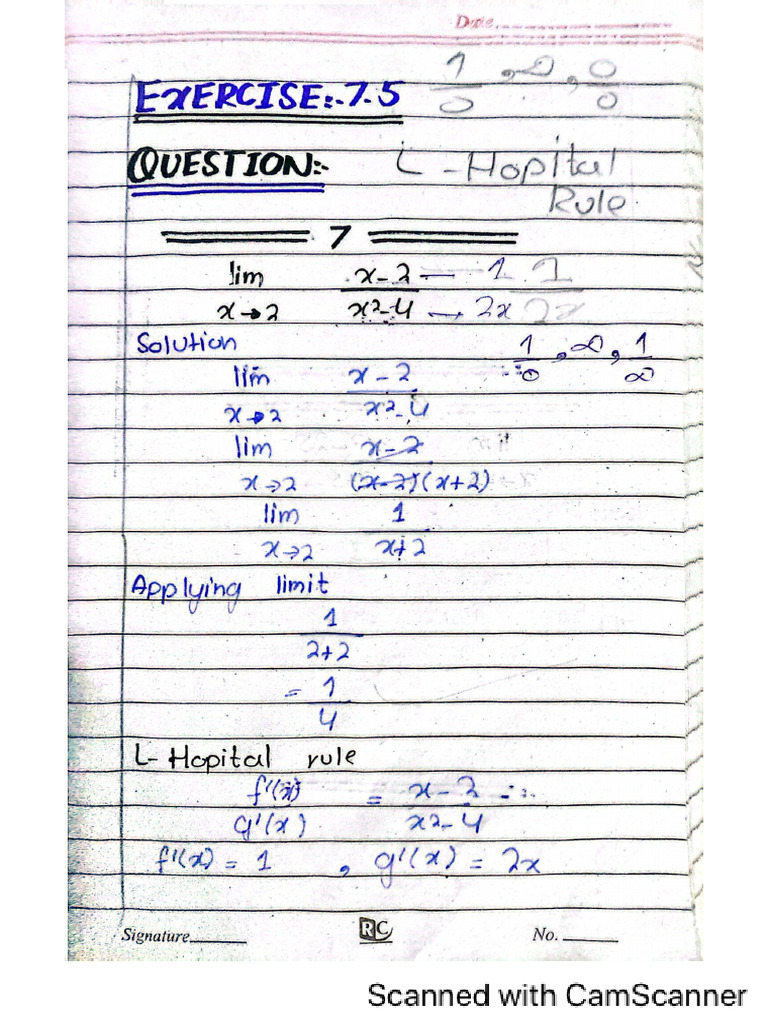 Date
EXERCISE:-7.5 1/0 , ∞ , 0/0
QUESTION:- L-Hopital
Rule
7
lim x-2 — 1 1
x→2 x²-4 → 2x 2x
Solution 1/0 , ∞ , 1/∞
lim x-2
x→2 x²-4
lim x-2
x→2 (x-2)(x+2)
lim 1
x→2 x+2
Applying limit
1
2+2
= 1
4
L-Hopital rule
f'(x) = x-2
g'(x) x²-4
f'(x) = 1 , g'(x) = 2x
Signature RC No.
Scanned with CamScanner